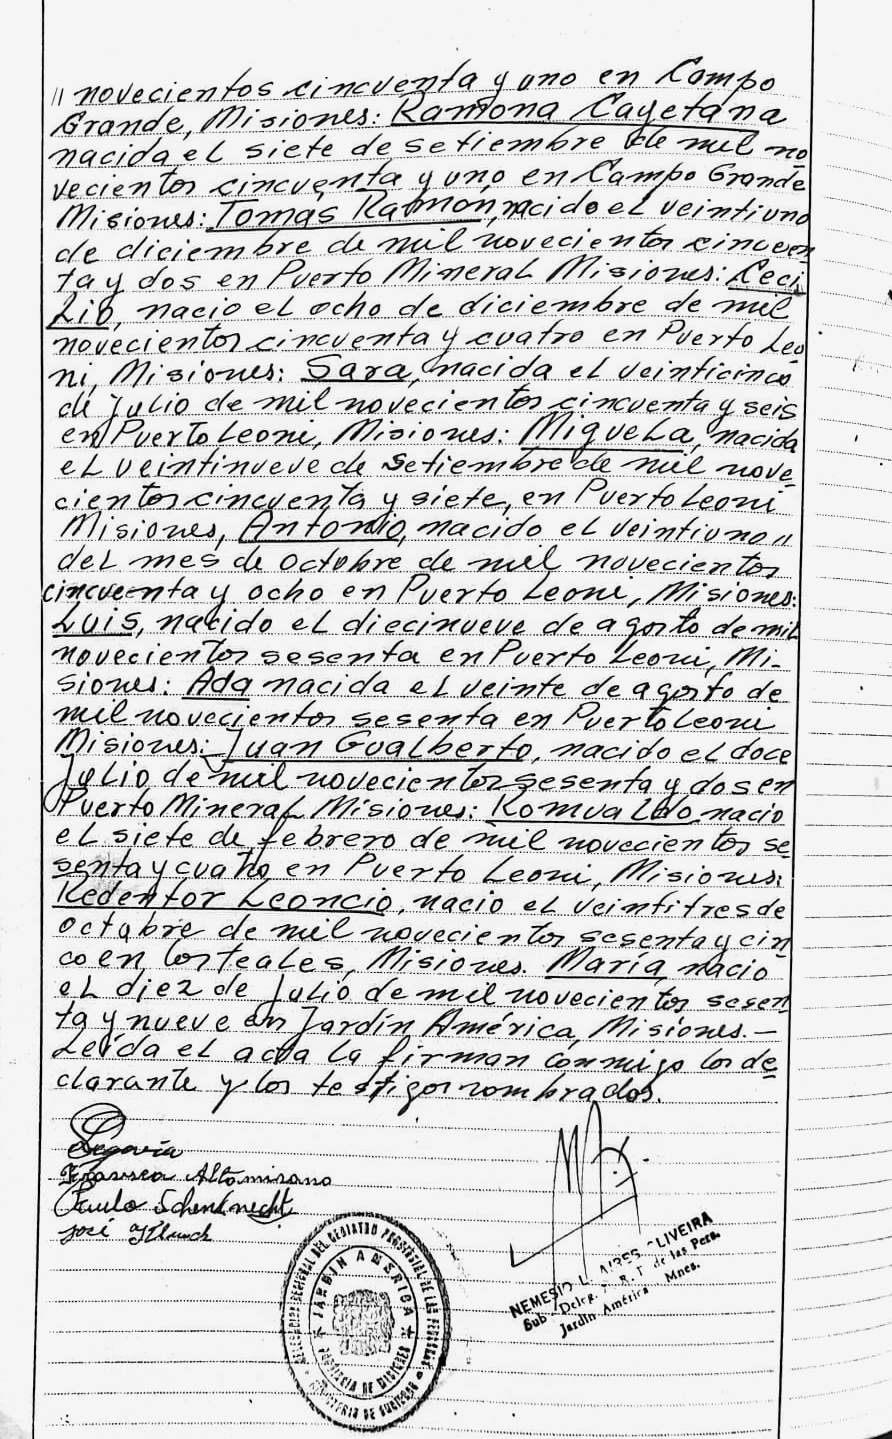 " novecientos cincuenta y uno en Campo
Grande, Misiones: Ramona Cayetana
nacida el siete de setiembre de mil no
vecientos cincuenta y uno en Campo Grande
Misiones: Tomás Ramón, nacido el veintiuno
de diciembre de mil novecientos cincuen
ta y dos en Puerto Mineral Misiones: Ceci
Lio, nacio el ocho de diciembre de mil
novecientos cincuenta y cuatro en Puerto Leo
ni, Misiones: Sara, nacida el veinticinco
de julio de mil novecientos cincuenta y seis
en Puerto Leoni, Misiones: Miguela, nacida
el veintinueve de setiembre de mil nove
cientos cincuenta y siete, en Puerto Leoni
Misiones, Antonio, nacido el veintiuno "
del mes de octubre de mil novecientos
cincuenta y ocho en Puerto Leoni, Misiones:
Luis, nacido el diecinueve de agosto de mil
novecientos sesenta en Puerto Leoni, Mi-
siones: Ada nacida el veinte de agosto de
mil novecientos sesenta en Puerto Leoni
Misiones: Juan Gualberto, nacido el doce
Julio de mil novecientos sesenta y dos en
Puerto Mineral Misiones: Romualdo nacio
el siete de febrero de mil novecientos se
senta y cuatro, en Puerto Leoni, Misiones:
Redentor Leoncio, nacio el veintitres de
octubre de mil novecientos sesenta y cin
co en los teales, Misiones. María, nacio
el diez de julio de mil novecientos sesen
ta y nueve en Jardín América, Misiones.-
Leída el acta la firman conmigo los de
clarante y los testigos nombrados.
Segovia
Altamirano
Paulo Schenknecht
José
NEMESIO L. AIRES OLIVEIRA
Sub - Deleg. R. P. de las Pers.
Jardín América - Mnes.
DELEGACION SECCIONAL DEL REGISTRO PROVINCIAL DE LAS PERSONAS
JARDIN AMERICA
PROVINCIA DE MISIONES